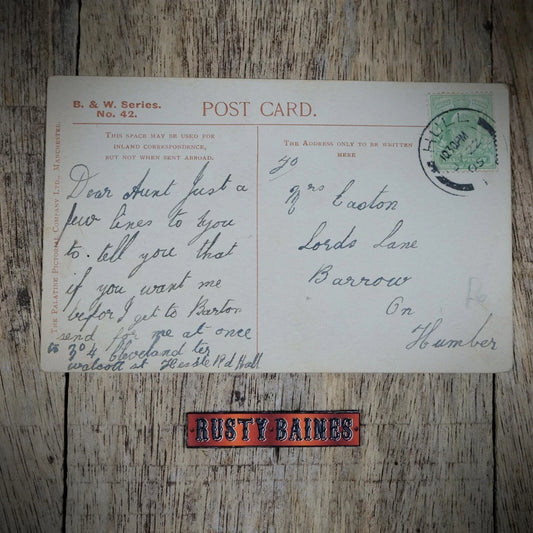 B. & W. Series.
No. 42.
POST CARD.
THIS SPACE MAY BE USED FOR
INLAND CORRESPONDENCE,
BUT NOT WHEN SENT ABROAD.
THE ADDRESS ONLY TO BE WRITTEN
HERE
THE PALATINE PICTORIAL COMPANY LTD., MANCHESTER.
HULL
10.10PM
05
Dear Aunt Just a
few lines to you
to tell you that
if you want me
befor I get to Barton
send for me at once
to 304 Cleveland ter
walcott st Hessle Rd Hull
To
Mrs Easton
Lords Lane
Barrow
On
Humber
RUSTY BAINES